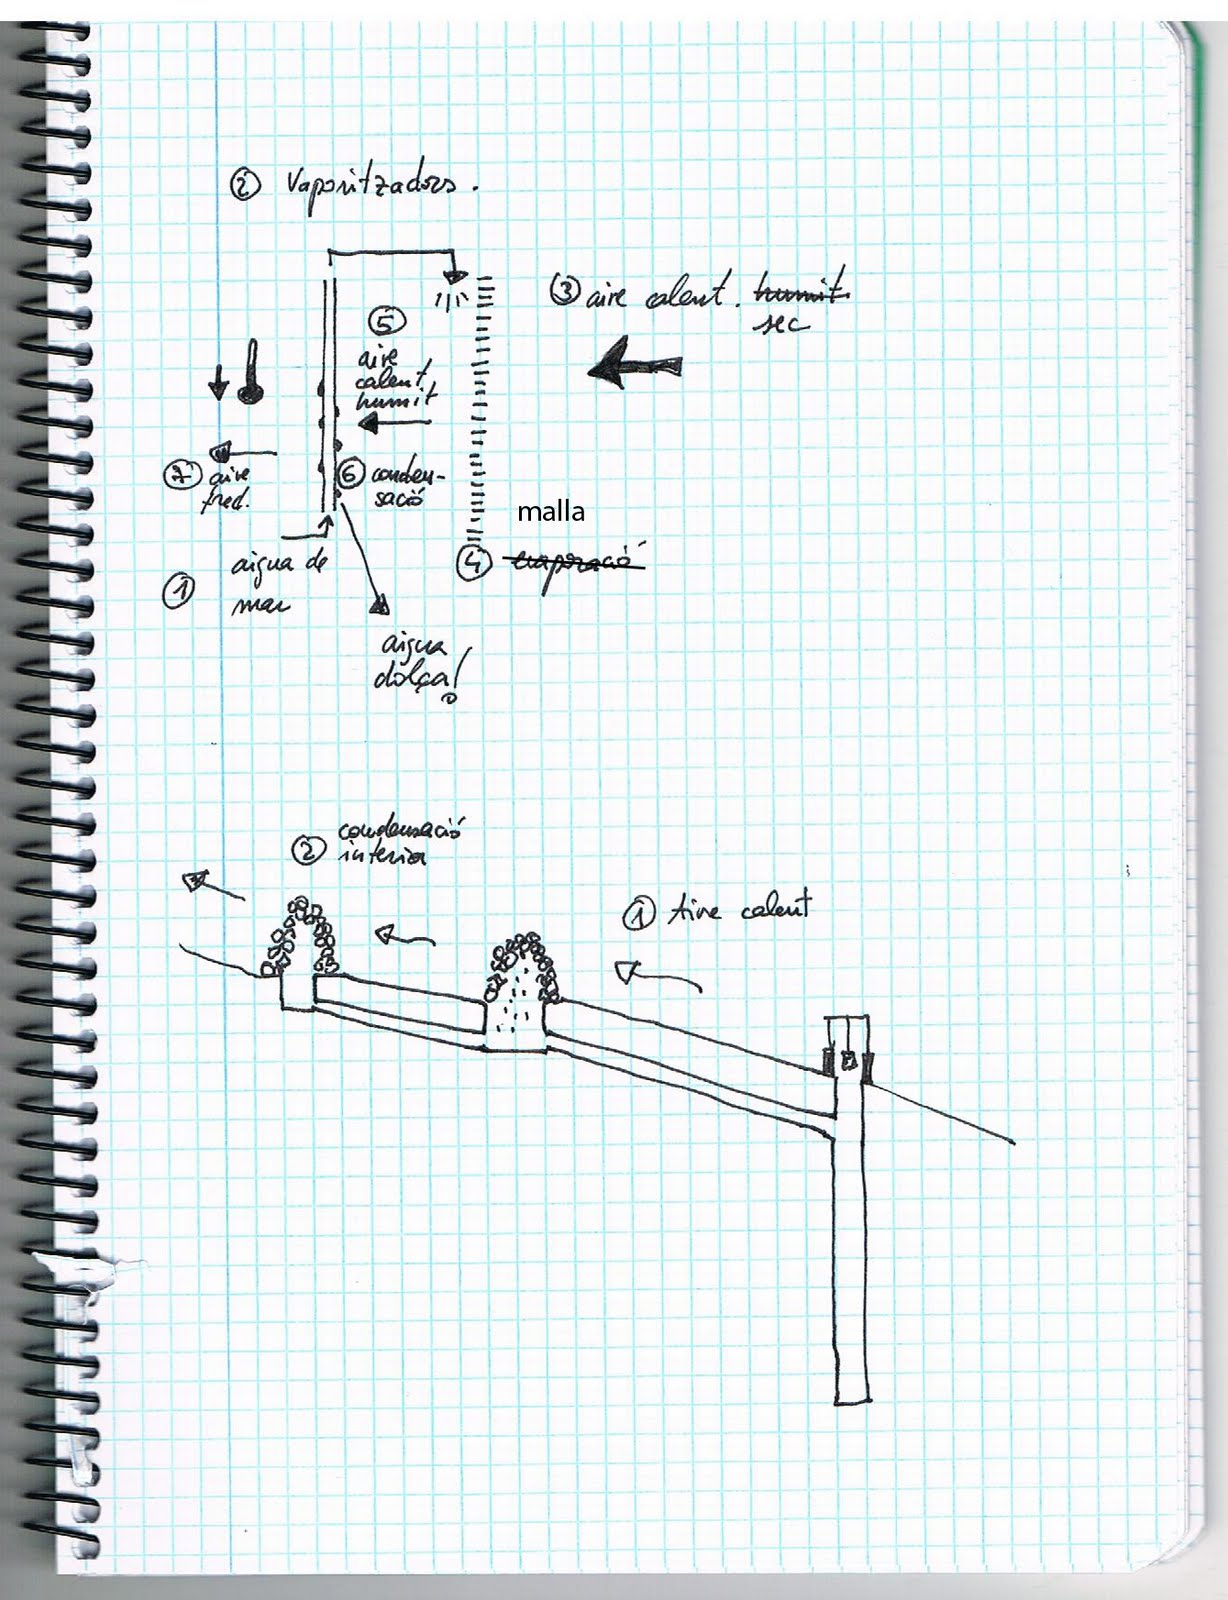 ② Vaporitzadors.
③ aire calent. humit.
sec
⑤
aire
calent
humit
⑦ aire
fred.
⑥ conden-
sació
malla
④ evaporació
① aigua de
mar
aigua
dolça!
② condensació
interior
① Aire calent